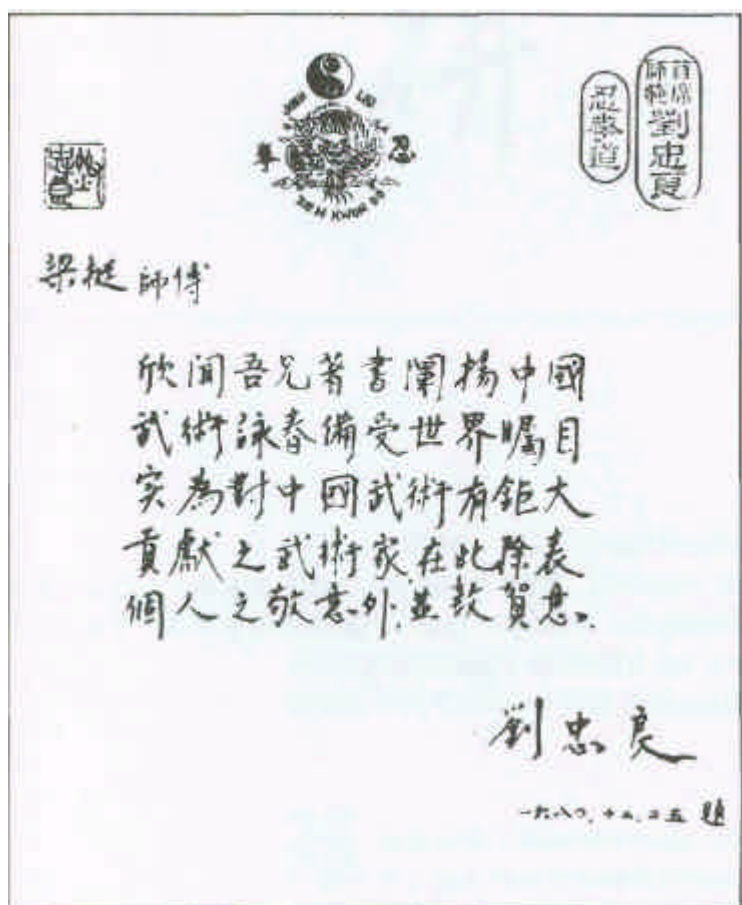 首席
師範
劉忠良
忍拳道
拳 忍
ZEN KWON DO
梁挺師傅
欣聞吾兄著書闡揚中國
武術詠春備受世界矚目
实為對中國武術有鉅大
貢獻之武術家在此除表
個人之敬意外,並致賀意。
劉忠良
一九八〇.十二.二五 題